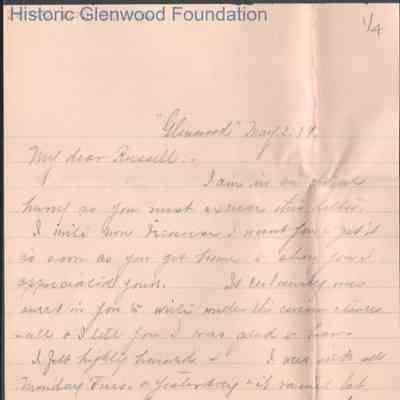 Historic Glenwood Foundation
1/4
"Glenwood" May 2. 19.
My dear Russell..
I am in an
hurry so you must excuse this letter.
I will now because I want you to get it
as soon as you get home & show you I
appreciated yours. It certainly was
sweet in you to write under the circumstances
all & I tell you I was glad to hear
I felt highly honored - I was sick all
Monday Tues. & Yesterday - it rained